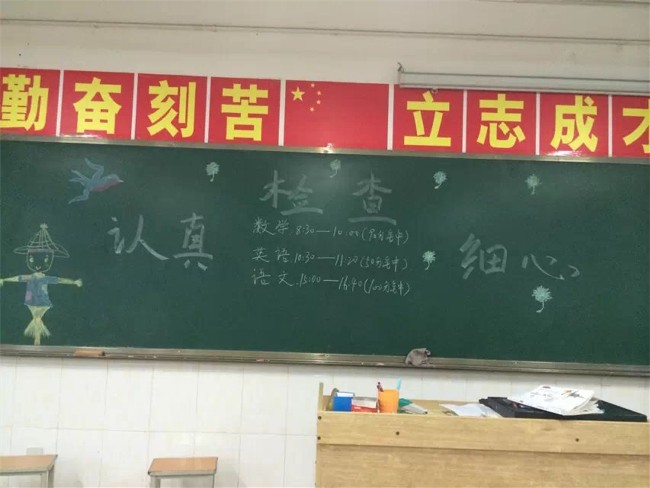 勤奋刻苦 立志成才
检查
认真
数学 8:30—10:00(90分钟)
英语 10:30—11:20(50分钟)
语文 15:00—16:40(100分钟)
细心